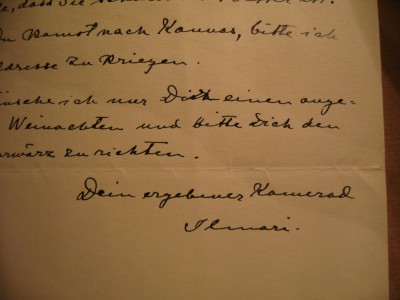 e, dass Sie
Du kommst nach Kanvas, bitte ich
dresse zu kriegen.
nsche ich nur Dich einen ange-
Weinachten und bitte Dich den
rwärz zu richten.
Dein ergebener Kamerad
Ilmari.